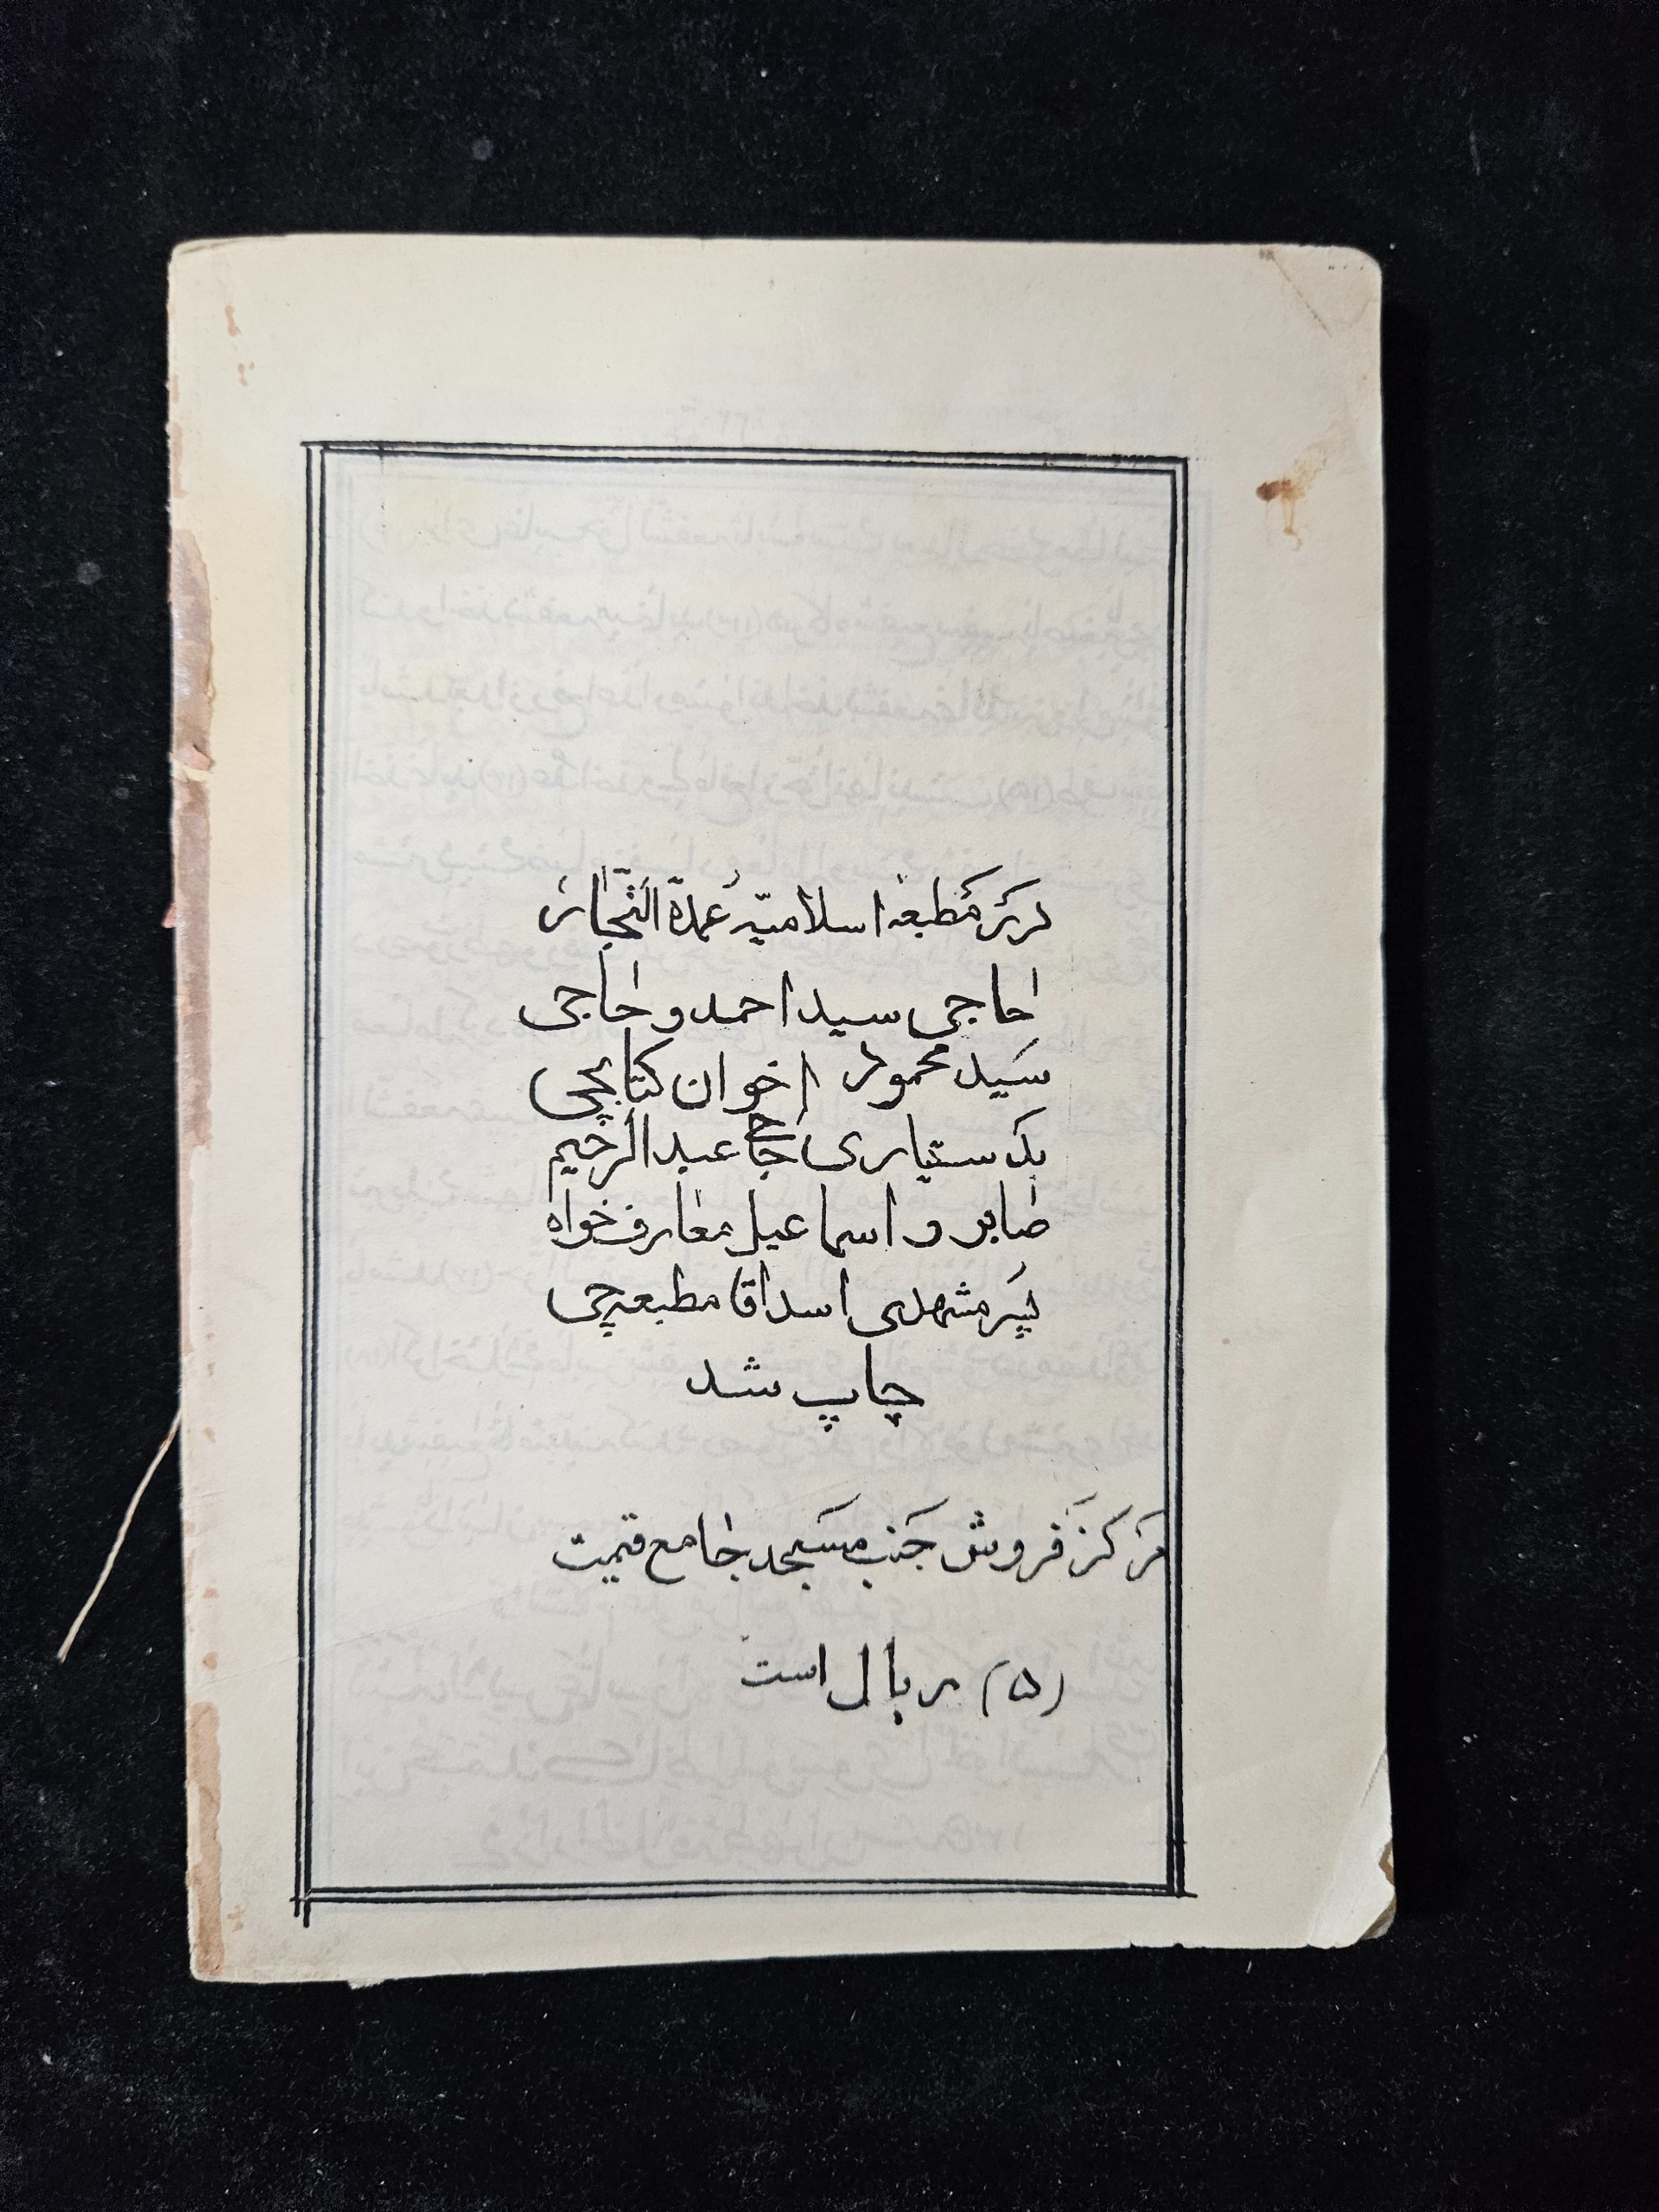 در مطبعه اسلامیّه عُمدّة التّجّار
حاجی سید احمد و حاجی
سَید محمود اخوان کتابچی
بدستیاری حاج عبدالرحیم
صابر و اسماعیل معارف خواه
پسر مشهدی اسداقا مطبعه چی
چاپ شد
مَرکز فروش جَنب مَسجد جامع قیمت
(۵) ریال است